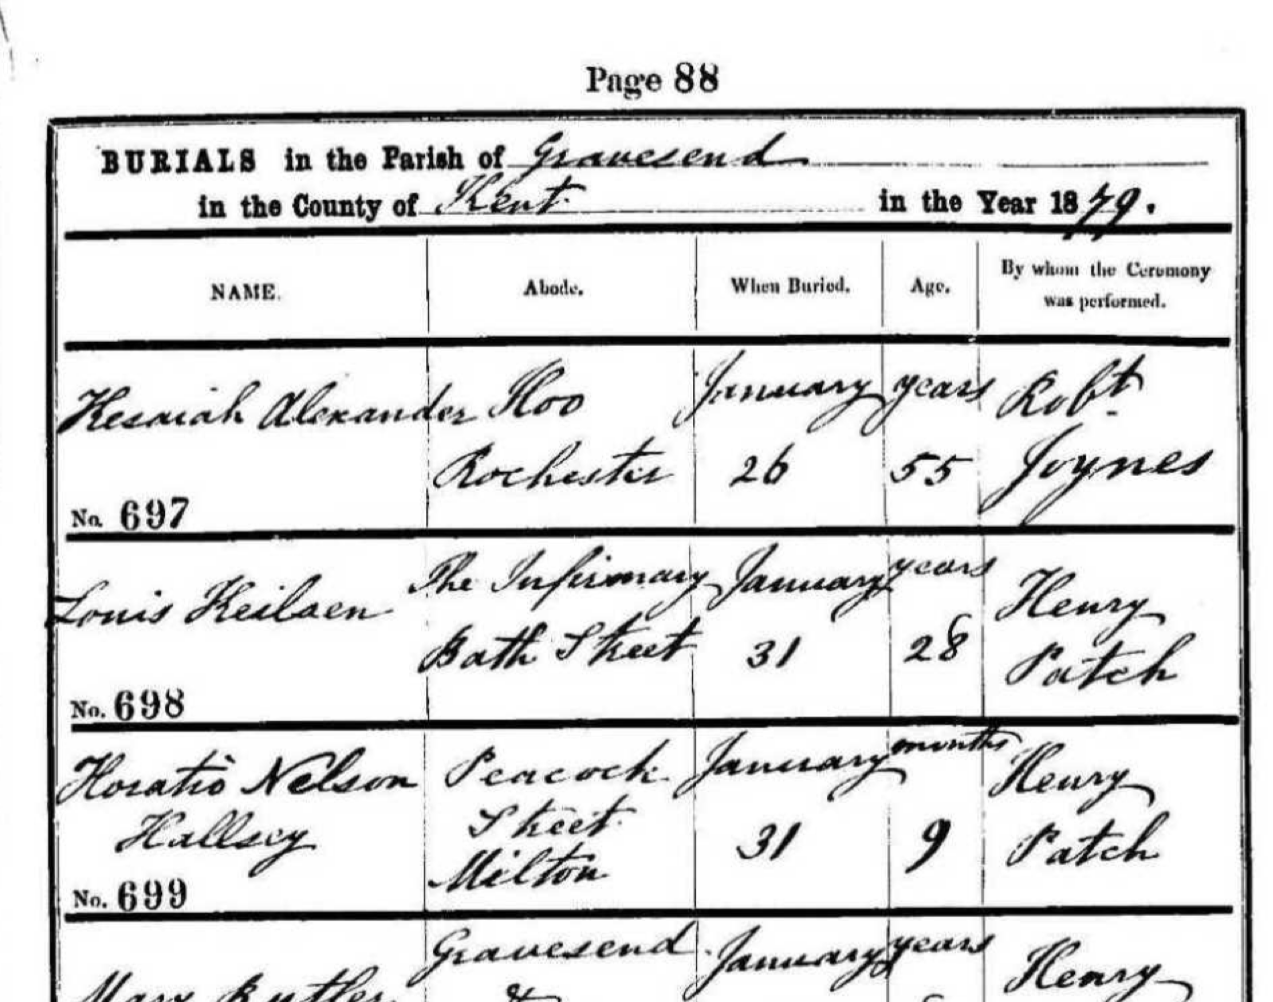 Page 88
BURIALS in the Parish of Gravesend
in the County of Kent in the Year 1879.
NAME. Abode. When Buried. Age. By whom the Ceremony
was performed.
Kesaiah Alexander Hoo January years Robt
Rochester 26 55 Joynes
No. 697
Louis Keilsen The Infirmary January years Henry
Bath Street 31 28 Patch
No. 698
Horatio Nelson Peacock January months Henry
Hallsey Street 31 9 Patch
Milton
No. 699
Gravesend January years Henry
Mary Butler